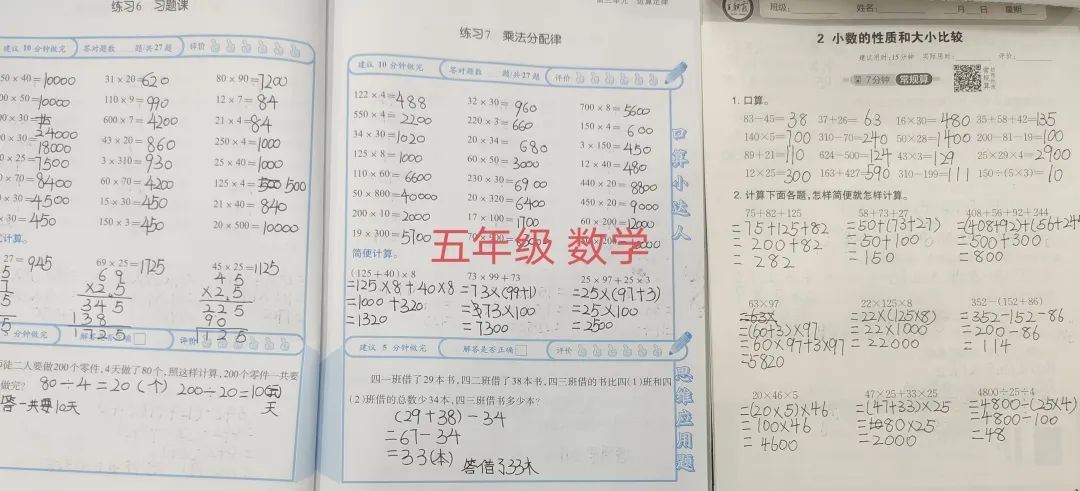 练习6 习题课
建议 10 分钟做完 答对题数 题/共27题 评价
50×40=10000 31×20=620 80×90=7200
110×9=990 12×7=84
600×7=4200 21×4=84
43×20=860 250×4=1000
3×310=930 25×40=1000
60×70=4200 125×4=500
15×30=450 21×40=840
150×3=450 20×500=10000
27=945 69×25=1725 45×25=1125
5 分钟做完 解答是否正确 评价
徒二人要做200个零件,4天做了80个,照这样计算,200个零件一共要
做完? 80÷4=20(个) 200÷20=10天
答一共要10天
第三单元 运算定律
练习7 乘法分配律
建议 10 分钟做完 答对题数 题/共27题 评价
122×4=488 32×30=960 700×8=5600
550×4=2200 220×3=660 150×4=600
34×30=1020 20×34=680 3×150=450
125×8=1000 60×50=3000 12×40=480
110×60=6600 230×30=6900 440×20=8800
50×800=40000 20×320=6400 450×20=9000
200×10=2000 17×100=1700 60×200=12000
19×300=5700
口算小达人
五年级 数学
简便计算。
(125+40)×8 73×99+73 25×97+25×3
=125×8+40×8 =73×(99+1) =25×(97+3)
=1000+320 =73×100 =25×100
=1320 =7300 =2500
建议 5 分钟做完 解答是否正确 评价
四一班借了29本书,四二班借了38本书,四三班借的书比四(1)班和四
(2)班借的总数少34本,四三班借书多少本?
(29+38)-34
=67-34
=33(本) 答借了33本
思维应用题
班级: 姓名: 月 日 星期
2 小数的性质和大小比较
建议用时:15分钟 实际用时: 评价:
第7分钟 常规算
1. 口算。
83-45=38 37+26=63 16×30=480 35+58+42=135
140×5=700 310-70=240 50×28=1400 200-81-19=100
89+21=110 624-500=124 43×3=129 25×29×4=2900
12×25=300 163+427=590 310-199=111 150÷(5×3)=10
2. 计算下面各题,怎样简便就怎样计算。
75+82+125 58+73+27 408+56+92+244
=75+125+82 =50+(73+27) =(408+92)+(56+244
=200+82 =50+100 =500+300
=282 =150 =800
63×97 22×125×8 352-(152+86)
=63× =22×(125×8) =352-152-86
=(60+3)×97 =22×1000 =200-86
=60×97+3×97 =22000 =114
=5820
20×46×5 47×25+33×25 4800÷25÷4
=(20×5)×46 =(47+33)×25 =4800÷(25×4)
=100×46 =80×25 =4800÷100
=4600 =2000 =48